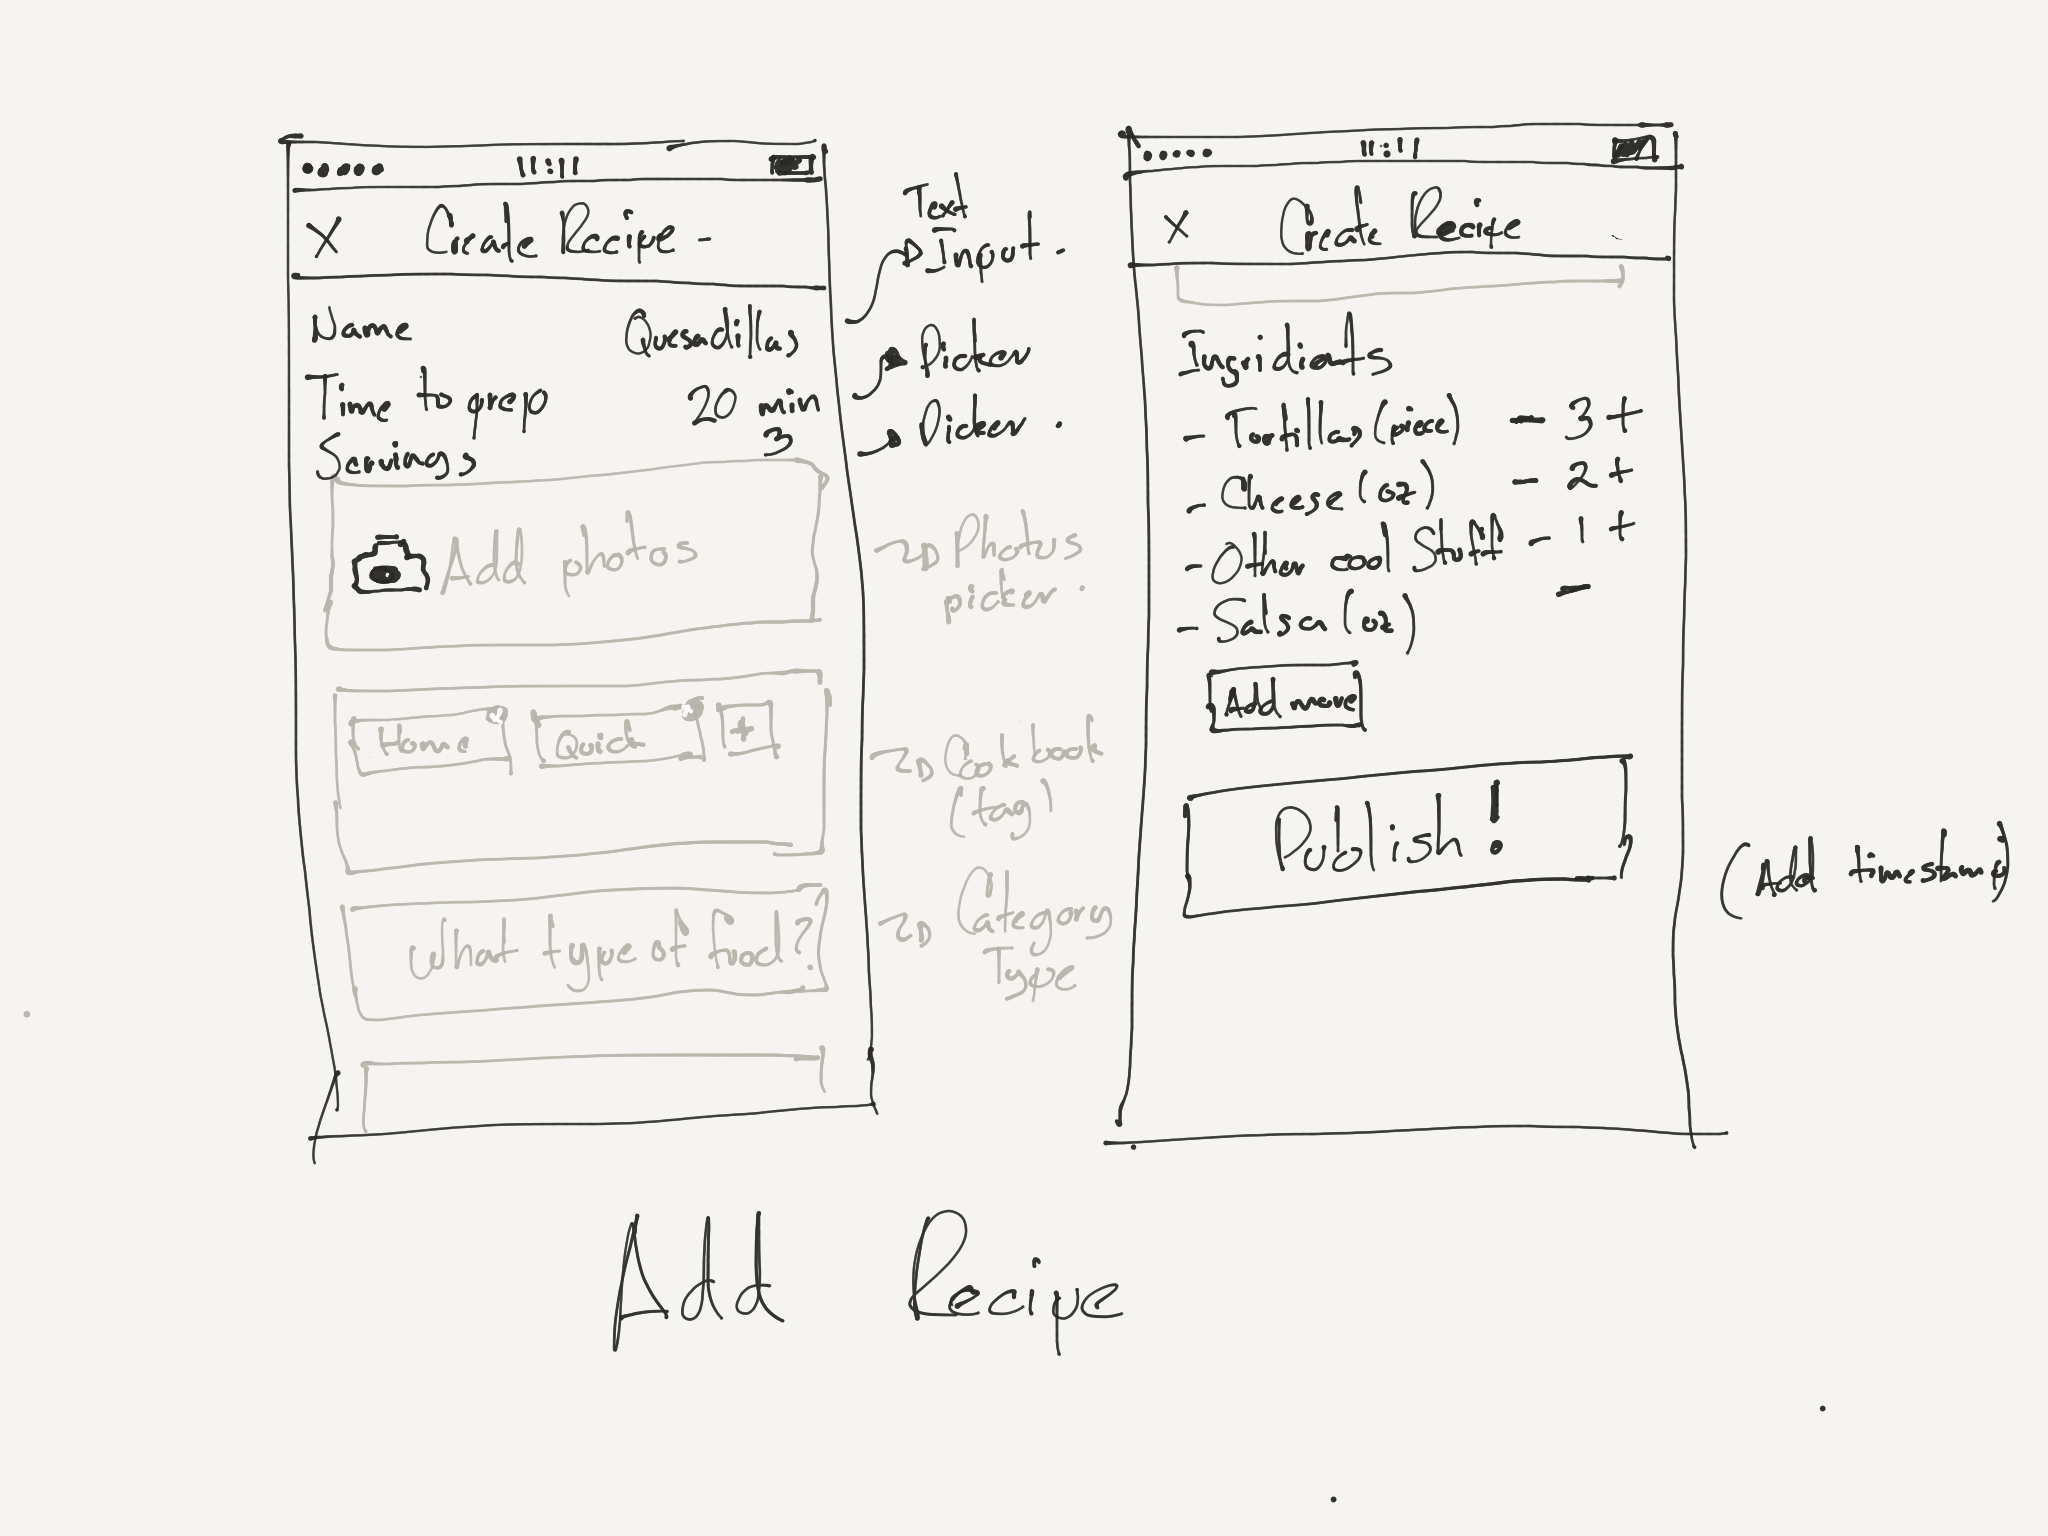 11:11
X Create Recipe -
Name Quesadillas
Time to prep 20 min
Servings 3
Add photos
Home x Quick x +
What type of food?
Text
Input.
Picker
Picker.
Photos
picker.
Cookbook
(tag)
Category
Type
11:11
X Create Recipe
Ingridients
- Tortillas (piece) - 3 +
- Cheese (oz) - 2 +
- Other cool Stuff - 1 +
- Salsa (oz) -
Add more
Publish!
(Add timestamp)
Add Recipe